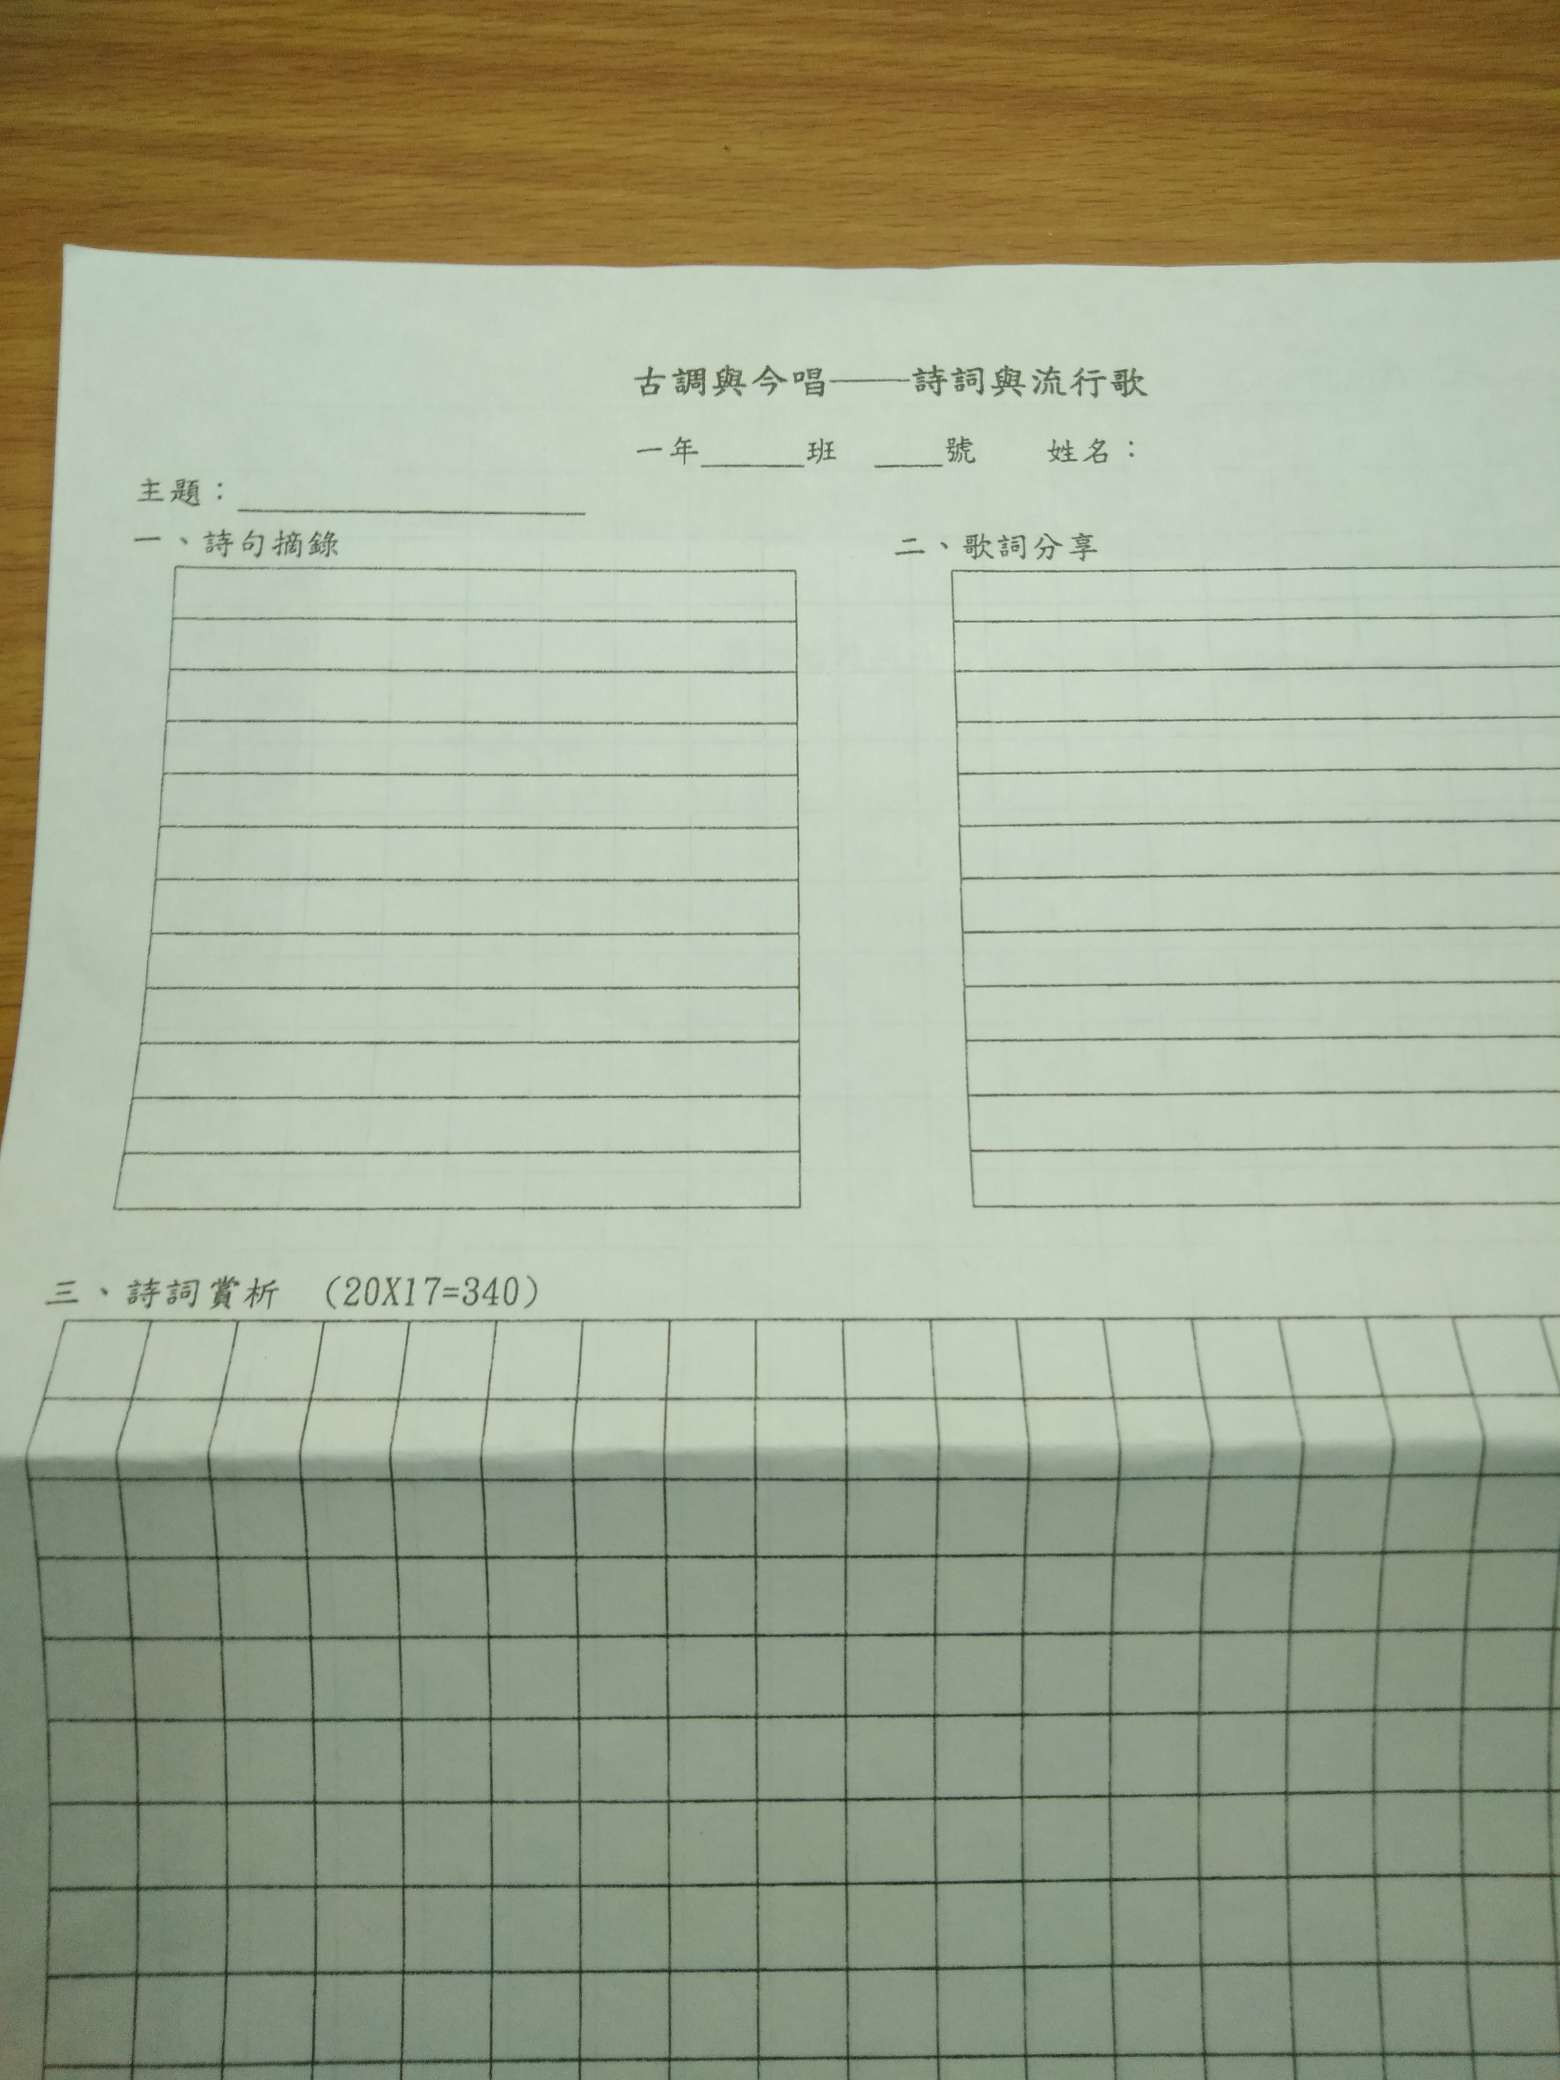 古調與今唱——詩詞與流行歌
一年______班 ____號 姓名：
主題：____________________
一、詩句摘錄
二、歌詞分享
三、詩詞賞析 （20X17=340）